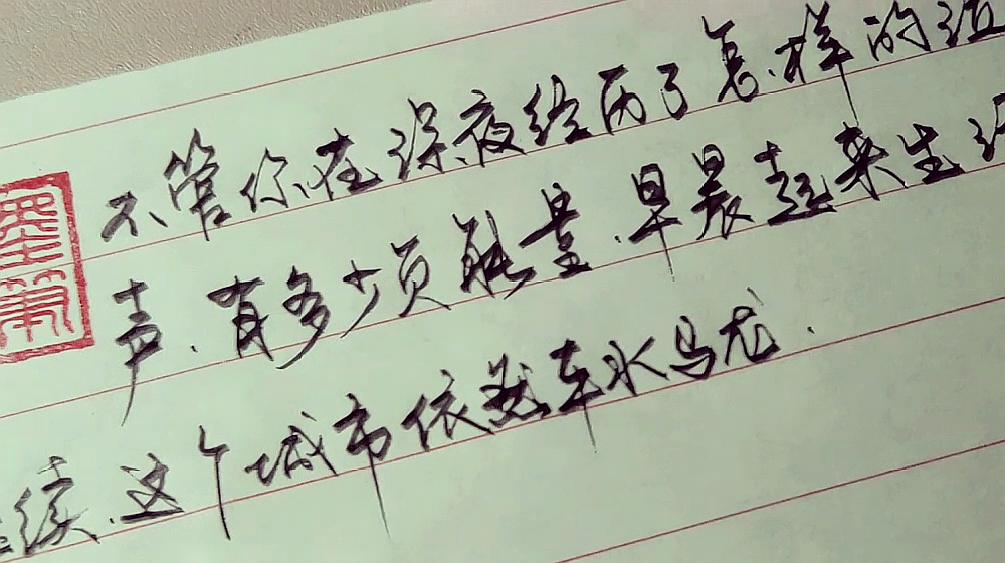 不管你在深夜经历了怎样的
声,有多少负能量,早晨起来生
续,这个城市依然车水马龙.